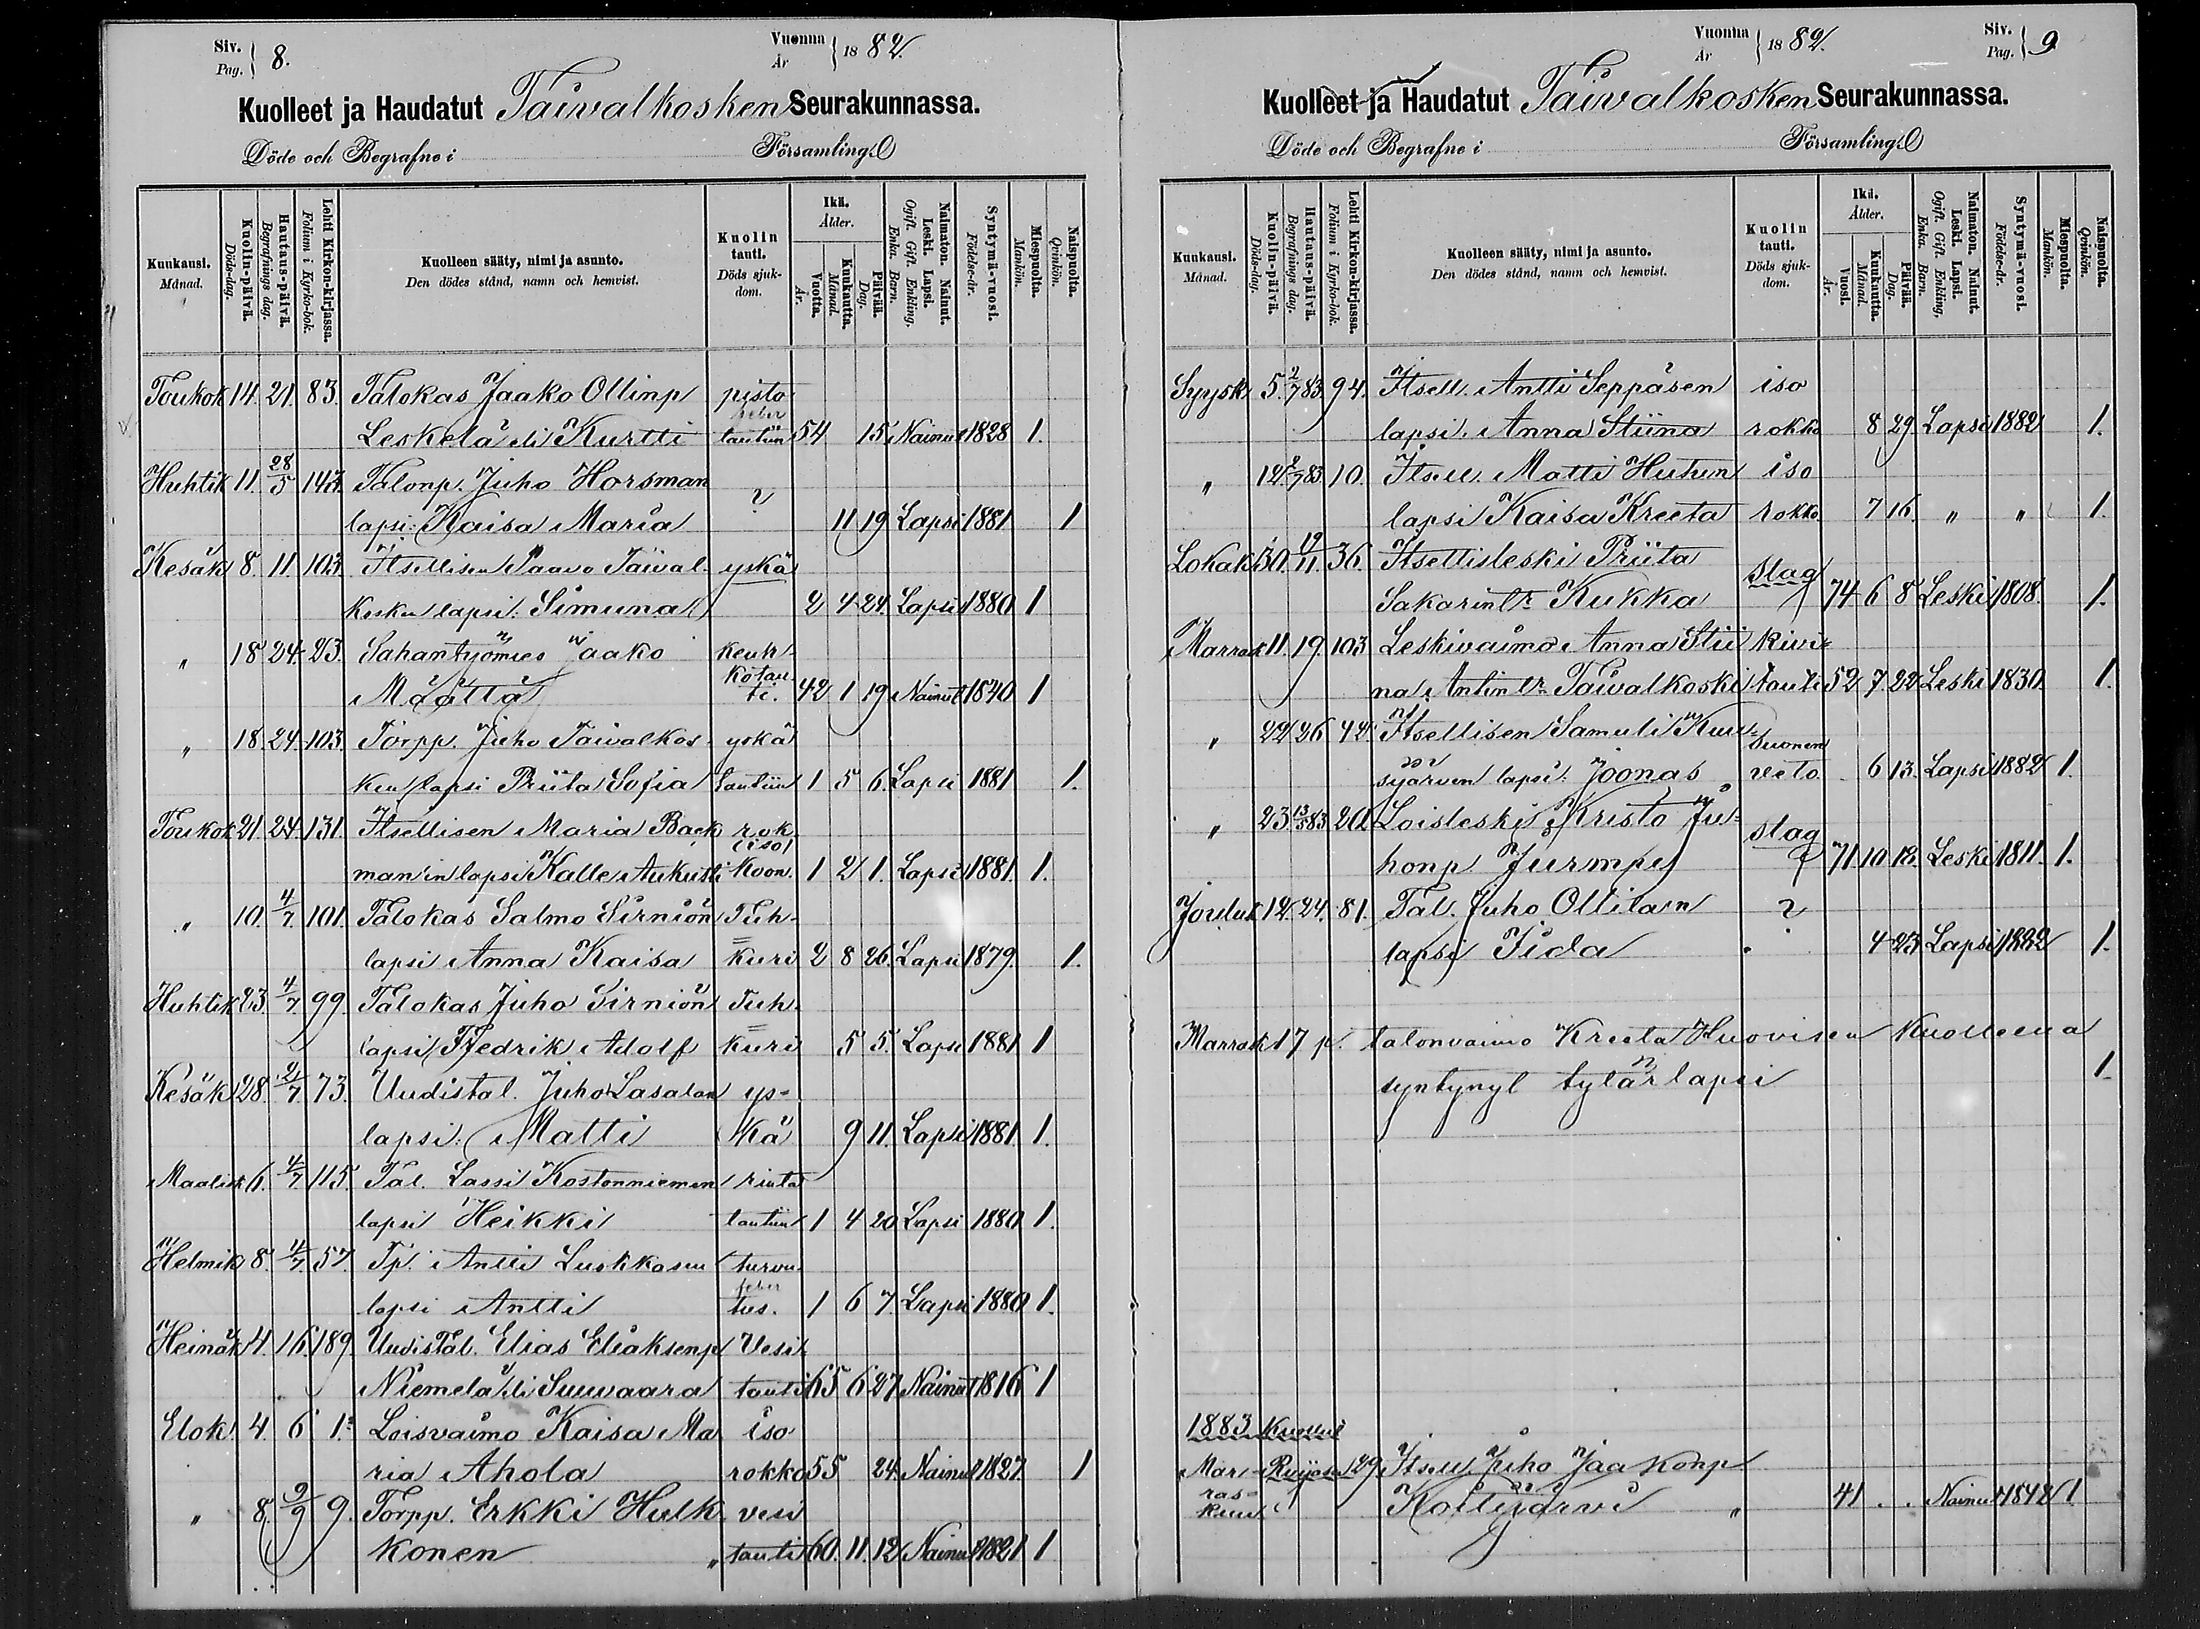 Siv. Pag. 8. Vuonna År 1882
Kuolleet ja Haudatut Taivalkosken Seurakunnassa.
Döde och Begrafne i Församling.
Kuukausi. Månad. Kuolin-päivä. Döds-dag. Hautaus-päivä. Begrafnings dag. Lehti Kirkon-kirjassa. Folium i Kyrko-bok. Kuolleen sääty, nimi ja asunto. Den dödes stånd, namn och hemvist. Kuolin tauti. Döds sjuk-dom. Ikä. Ålder. Vuotta. År. Kuukautta. Månad. Päivää. Dag. Naimaton. Nainut. Leski. Lapsi. Ogift. Gift. Enkling. Enka. Barn. Syntymä-vuosi. Födelse-år. Miespuolta. Mankön. Naispuolta. Qvinkön.
Toukok 14. 21. 83. Talokas Jaako Ollinp pisto
Leskelä eli Kurtti tautiin 54 15 Nainut 1828 1.
Huhtik 11. 28/5 143. Talonp. Juho Horsman ?
lapsi: Kaisa Maria 11 19 Lapsi 1881 1
Kesäk 8. 11. 103. Itsellisen Paavo Taival- yskä
kosken lapsi. Simuna 2 4 24. Lapsi 1880 1
" 18 24 23. Sahantyömies Jaako keuh-
Määttä kotau ti. 42 1 19 Nainut 1840 1
" 18 24 103 Torpp. Juho Taivalkos- yskä
ken lapsi Priita Sofia tautiin 1 5 6. Lapsi 1881 1.
Toukok 21. 24. 131. Itsellisen Maria Back rok (iso)
man'in lapsi Kalle Aukusti koon. 1 2 1. Lapsi 1881. 1.
" 10. 4/7 101. Talokas Salmo Sirniön Tuh-
lapsi Anna Kaisa kuri 2 8 26. Lapsi 1879. 1.
Huhtik 23. 4/7 99. Talokas Juho Sirniön Tuh-
lapsi Fredrik Adolf kuri 5 5. Lapsi 1881 1
Kesäk 28. 2/7 73. Uudistal. Juho Lasalan ys-
lapsi. Matti kä 9 11. Lapsi 1881. 1.
Maalisk 6. 4/7 115. Tal. Lassi Kostonniemen rinta
lapsi Heikki tautiin 1 4 20 Lapsi 1880 1.
Helmik 8. 4/7 57. Tp. Antti Luokkosen
lapsi Antti tus. 1 6 7 Lapsi 1880 1.
Heinäk 4. 16. 189. Uudistal. Elias Eliaksenp Vesi
Niemelä eli Suuvaara tauti 65 6 27 Nainut 1816 1
Elok. 4. 6 1. Loisvaimo Kaisa Ma iso
ria Ahola rokko 55 24 Nainut 1827 1
" 8. 2/9 9. Torpp. Erkki Hulk vesi
konen " tauti 60. 11. 12 Nainut 1821 1
Siv. Pag. 9 Vuonna År 1882.
Kuolleet ja Haudatut Taivalkosken Seurakunnassa.
Döde och Begrafne i Församling.
Kuukausi. Månad. Kuolin-päivä. Döds-dag. Hautaus-päivä. Begrafnings dag. Lehti Kirkon-kirjassa. Folium i Kyrko-bok. Kuolleen sääty, nimi ja asunto. Den dödes stånd, namn och hemvist. Kuolin tauti. Döds sjuk-dom. Ikä. Ålder. Vuosi. År. Kuukautta. Månad. Päivää. Dag. Naimaton. Nainut. Leski. Lapsi. Ogift. Gift. Enkling, Enka. Barn. Syntymä-vuosi. Födelse-år. Miespuolta. Mankön. Naispuolta. Qvinkön.
Syysk 5. 2/7 83 94. Itsell. Antti Seppäsen iso
lapsi. Anna Stiina rokko 8 29. Lapsi 1882 1.
" 12 2/7 83 10. Itsell. Matti Hutun iso
lapsi Kaisa Kreeta rokko 7 16. " " 1.
Lokak 30. 12/11. 36. Itsellisleski Priita slag
Sakarintr. Kukka 74 6 8 Leski 1808. 1.
Marrask 11. 19. 103 Leskivaimo Anna Stii kivi-
na Antin tr. Taivalkoski tauti 52 7 22 Leski 1830. 1.
" 22 26 42. Itsellisen Samuli Kuu- suonen
sijärven lapsi. Joonas veto 6 13. Lapsi 1882 1.
" 23 13/5 83 20. Loisleski Kristo Ju- slag
honp. Jurmu 71 10 12. Leski 1811. 1.
Jouluk 12. 24. 81. Tal. Juho Ollilan ?
lapsi Iida 4 23 Lapsi 1882 1.
Marrask 17 p. talonvaimo Kreeta Huovisen kuolleena
syntynyt tytärlapsi 1.
1883 kuollut
Mar- 29 Itsell Juho Jaakonp
ras-
kuu Koitijärvi " 41 . . Nainut 1842 1.